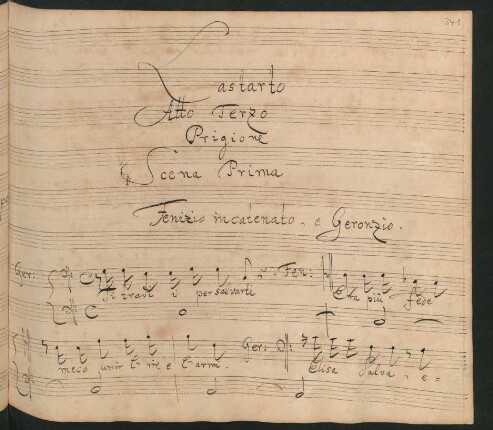 341
L'astarto
Atto Terzo
Prigione
Scena Prima
Fenizio incatenato, e Geronzio.
Ger: Ti trovi i per salvarti Fen: E la più fede
meco unir l'ire e l'armi. Ger: Elisa salva, e=